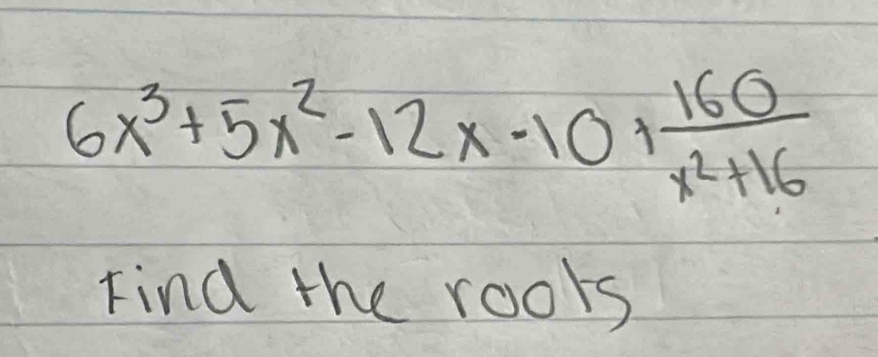 6x³+5x²-12x-10+160/(x²+16)
Find the roots